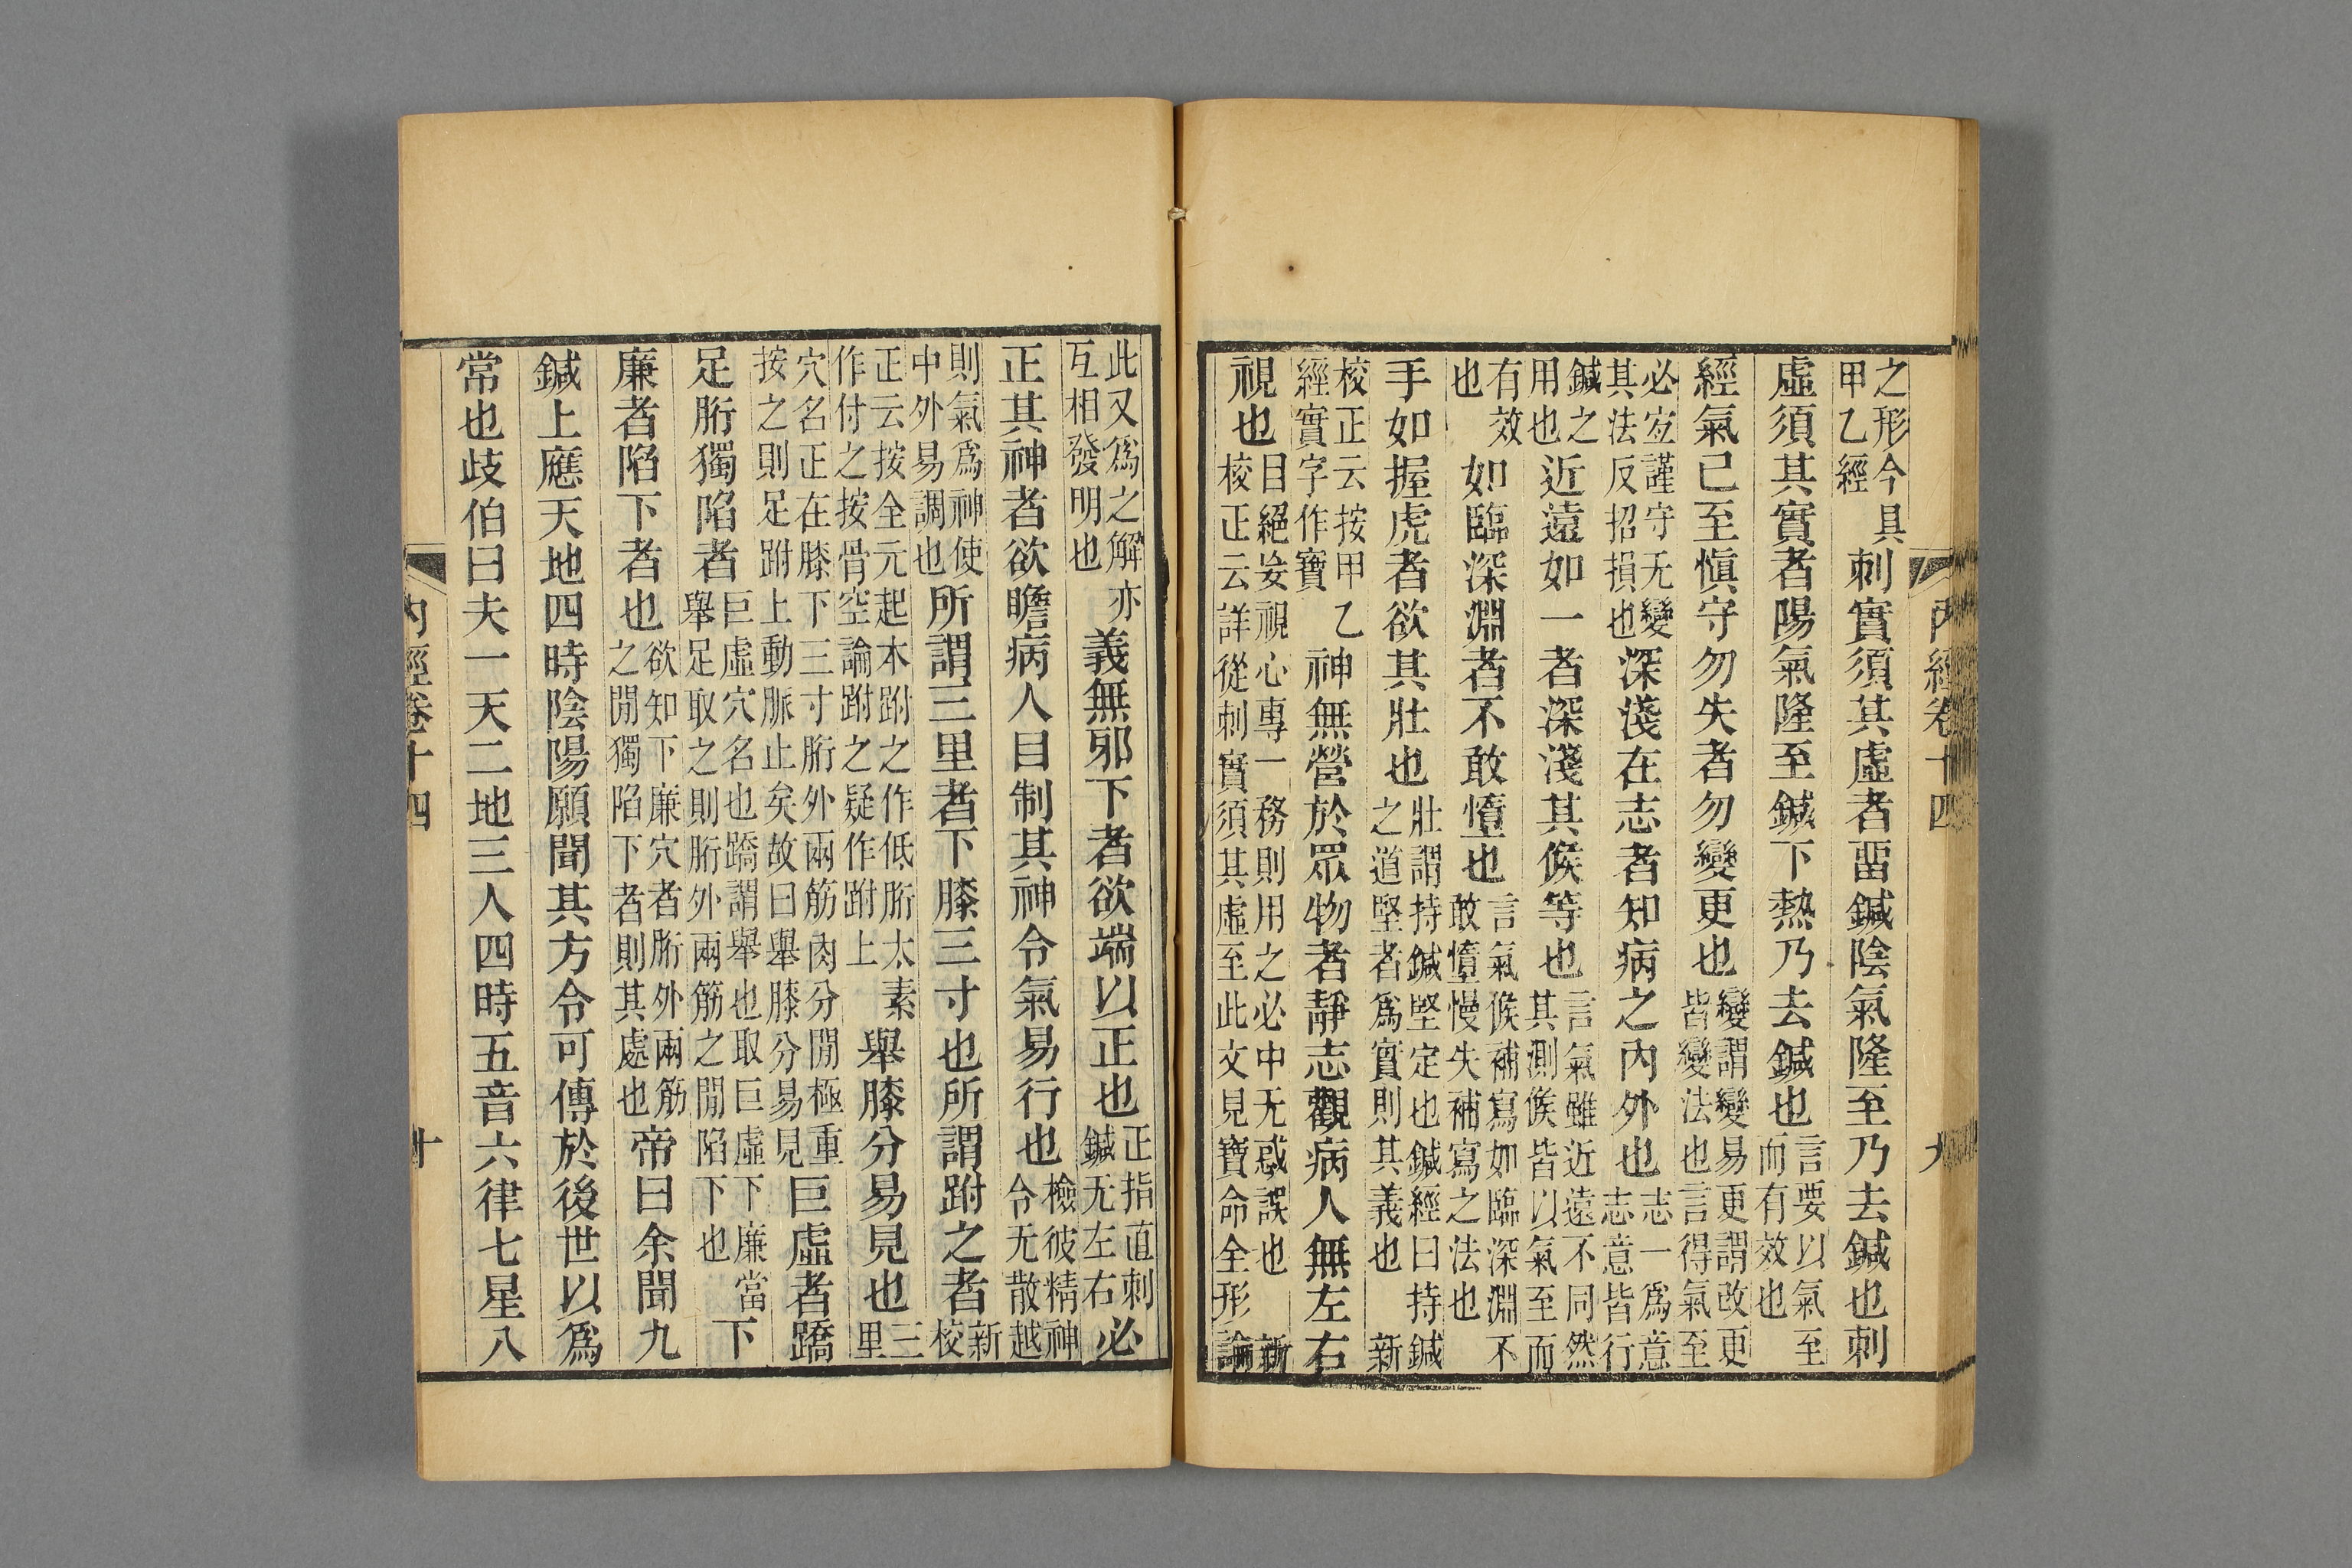 內經卷十四 九
之形今具甲乙經刺實須其虛者畱鍼陰氣隆至乃去鍼也刺
虛須其實者陽氣隆至鍼下熱乃去鍼也言要以氣至而有效也
經氣已至慎守勿失者勿變更也變謂變易更謂改更皆變法也言得氣至
必宐謹守无變其法反招損也深淺在志者知病之內外也志一爲意志意皆行
鍼之用也近遠如一者深淺其候等也言氣雖近遠不同然其測候皆以氣至而
有效也如臨深淵者不敢墯也言氣候補寫如臨深淵不敢墯慢失補寫之法也
手如握虎者欲其壯也壯謂持鍼堅定也鍼經曰持鍼之道堅者爲實則其義也新
校正云按甲乙經實字作寶神無營於眾物者靜志觀病人無左右
視也目絕妄視心專一務則用之必中无惑誤也新校正云詳從刺實須其虛至此文見寶命全形論
此又爲之解亦互相發明也義無邪下者欲端以正也正指直刺鍼无左右必
正其神者欲瞻病人目制其神令氣易行也檢彼精神令无散越
則氣爲神使中外易調也所謂三里者下膝三寸也所謂跗之者新校
正云按全元起本跗之作低胻太素作付之按骨空論跗之疑作跗上舉膝分易見也三里
穴名正在膝下三寸胻外兩筋肉分閒極重按之則足跗上動脈止矣故曰舉膝分易見巨虛者蹻
足胻獨陷者巨虛穴名也蹻謂舉也取巨虛下廉當舉足取之則胻外兩筋之閒陷下也下
廉者陷下者也欲知下廉穴者胻外兩筋之閒獨陷下者則其處也帝曰余聞九
鍼上應天地四時陰陽願聞其方令可傳於後世以爲
常也歧伯曰夫一天二地三人四時五音六律七星八
內經卷十四 十